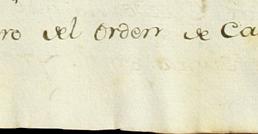 ro del Orden de Ca